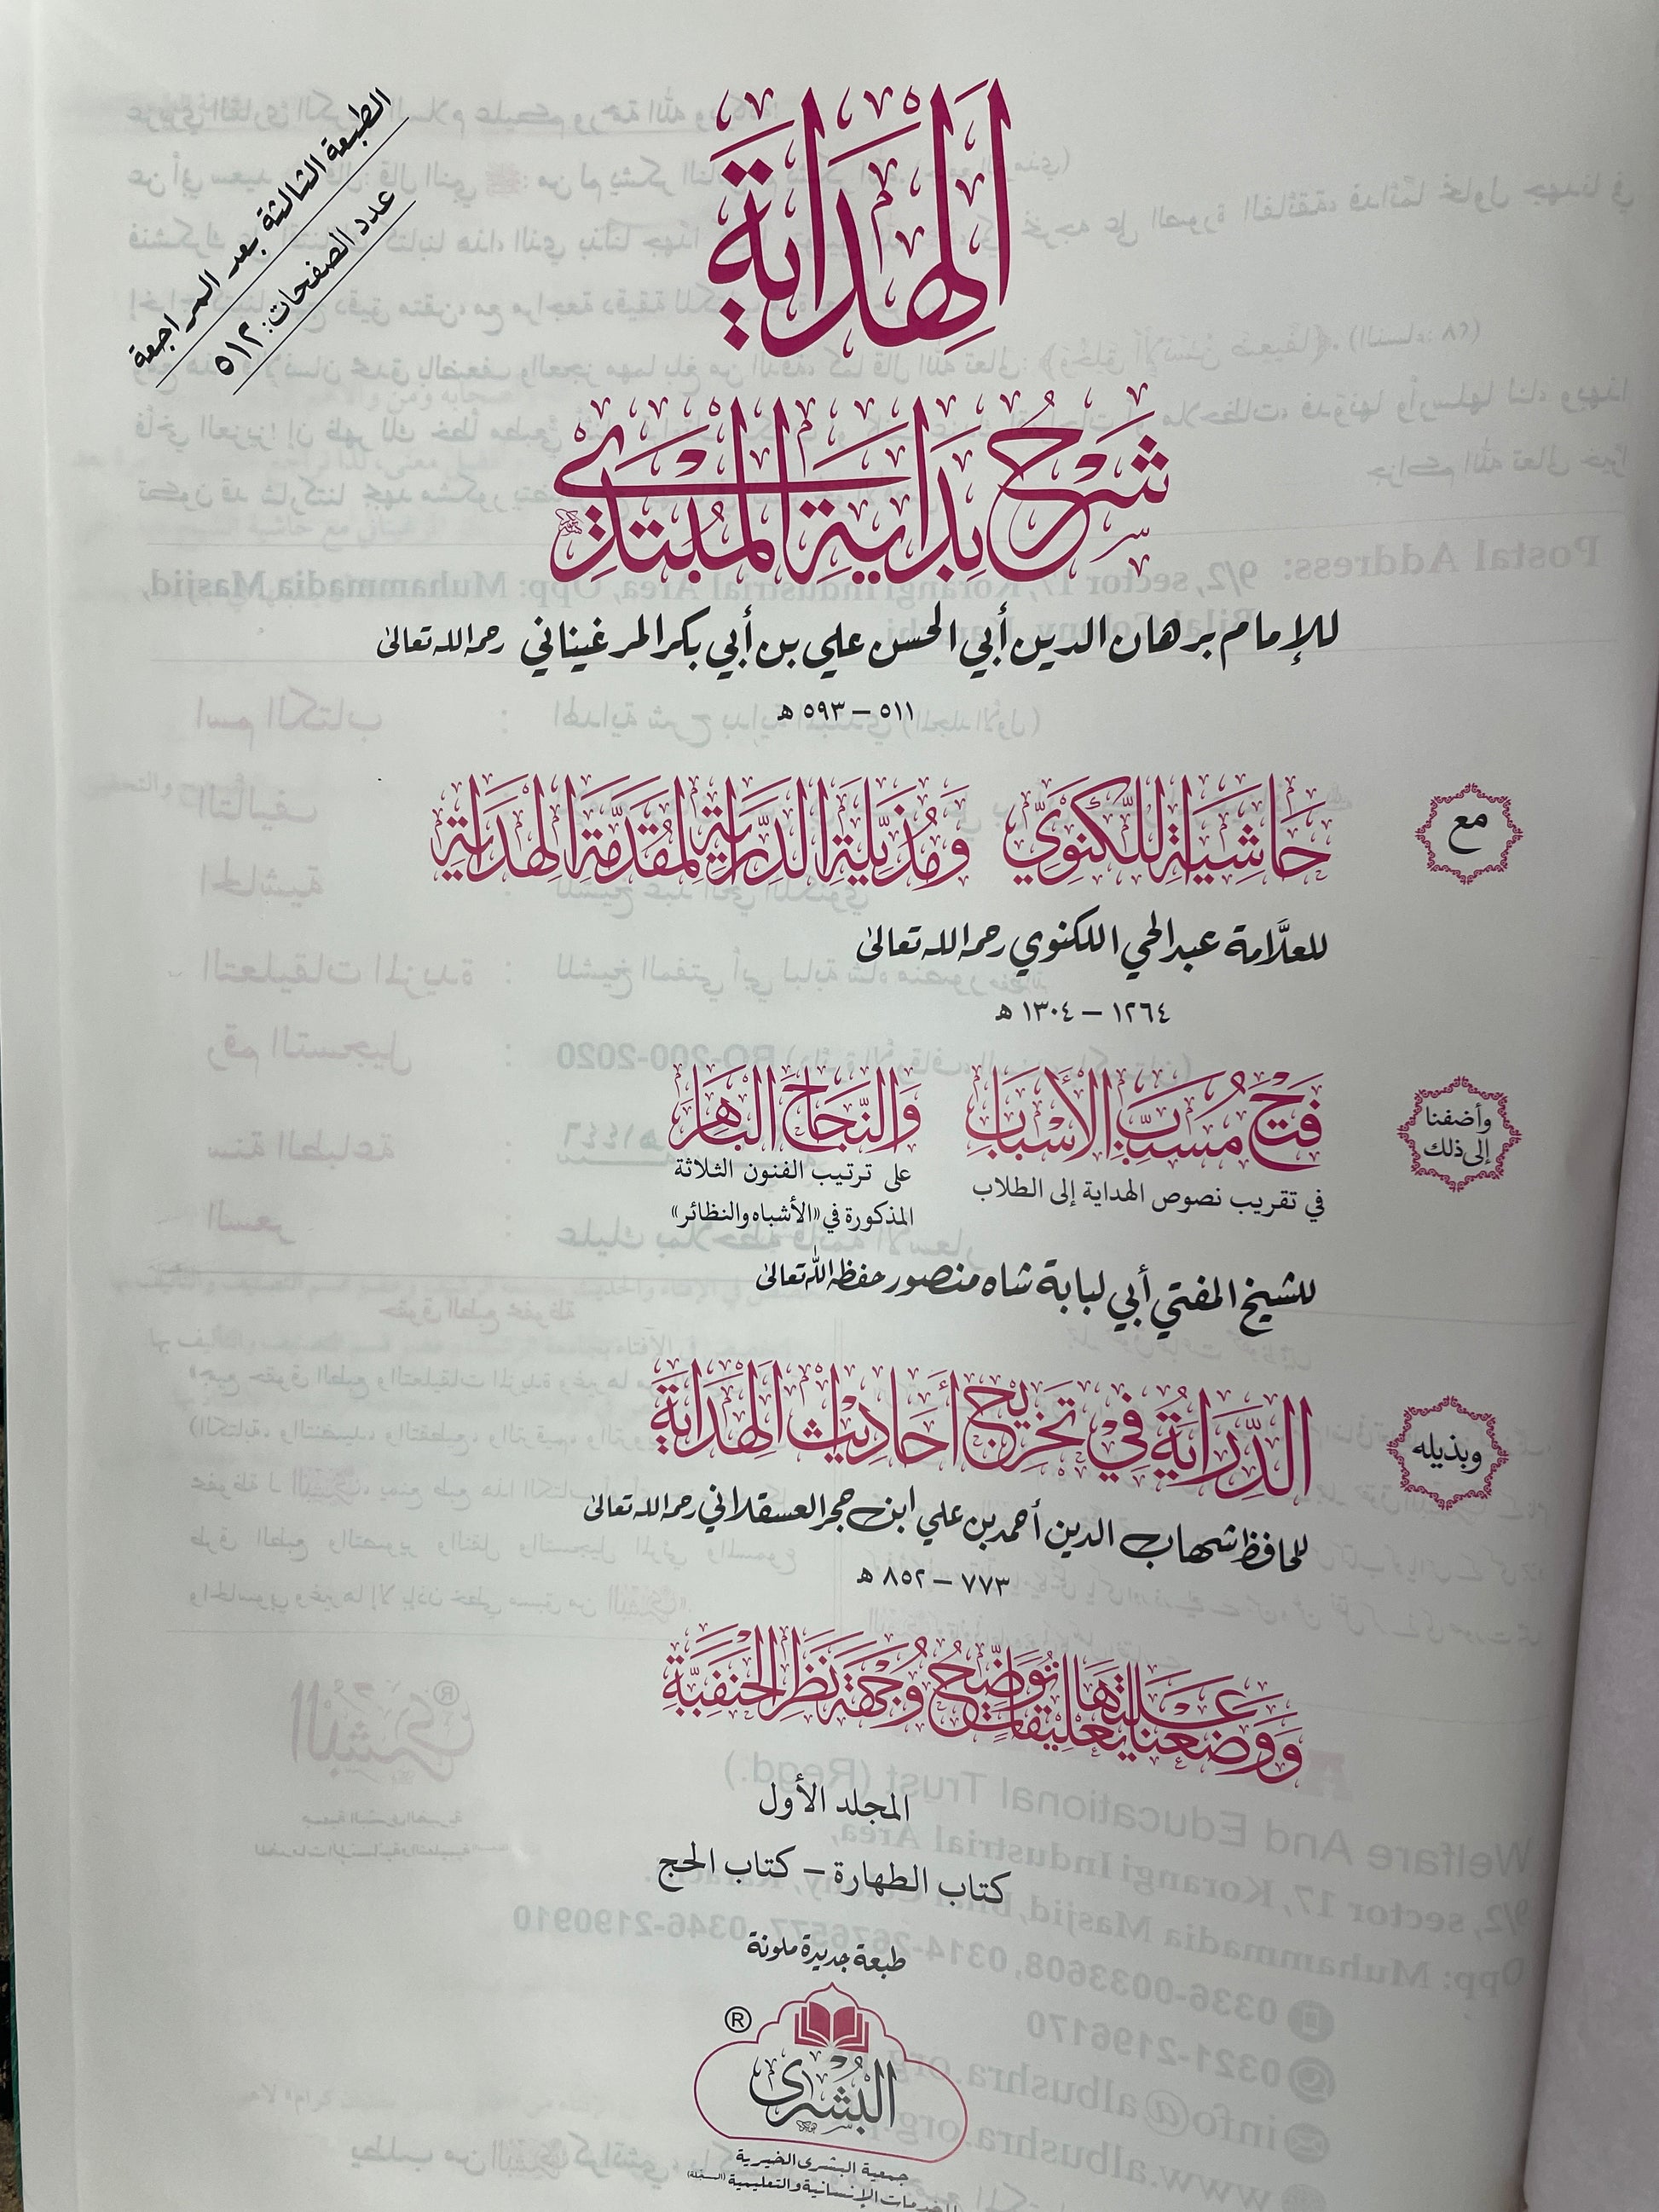 الطبعة الثالثة بعد المراجعة
عدد الصفحات: ٥١٢
الهداية
شرح بداية المبتدي
للإمام برهان الدين أبي الحسن علي بن أبي بكر المرغيناني رحمه الله تعالى
٥١١ – ٥٩٣ هـ
مع
حَاشِيَة اللَّكْنَوِيّ وَمُذَيِّلَة الدِّرَايَة لمُقَدّمَة الهِدَايَة
للعلَّامة عبد الحي اللكنوي رحمه الله تعالى
١٢٦٤ – ١٣٠٤ هـ
وأضفنا إلى ذلك
فَتح مُسَبِّب الأَسْبَاب وَالنَّجَاح البَاهِر
في تقريب نصوص الهداية إلى الطلاب
على ترتيب الفنون الثلاثة
المذكورة في «الأشباه والنظائر»
للشيخ المفتي أبي لبابة شاه منصور حفظه الله تعالى
وبذيله
الدِّرَايَة فِي تَخْرِيج أَحَادِيْث الهِدَايَة
للحافظ شهاب الدين أحمد بن علي ابن حجر العسقلاني رحمه الله تعالى
٧٧٣ – ٨٥٢ هـ
وَوَضعنَا عَلَيْهَا تعليقَات تُوَضّح وُجْهَة نَظَر الحَنَفِيَّة
المجلد الأول
كتاب الطهارة – كتاب الحج
طبعة جديدة ملونة
®
البُشرى
جمعية البشرى الخيرية
للخدمات الإنسانية والتعليمية (المسجلة)